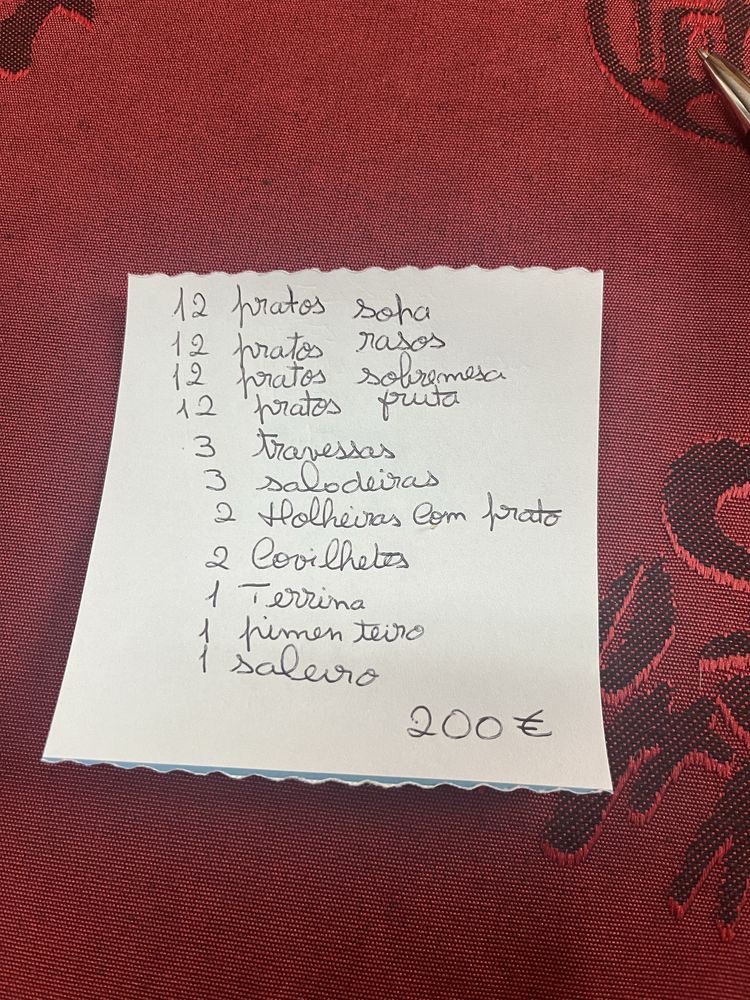 12 pratos sopa
12 pratos rasos
12 pratos sobremesa
12 pratos fruta
3 travessas
3 salodeiras
2 Holheiras Com prato
2 Covilhetes
1 Terrina
1 pimenteiro
1 saleiro
200 €